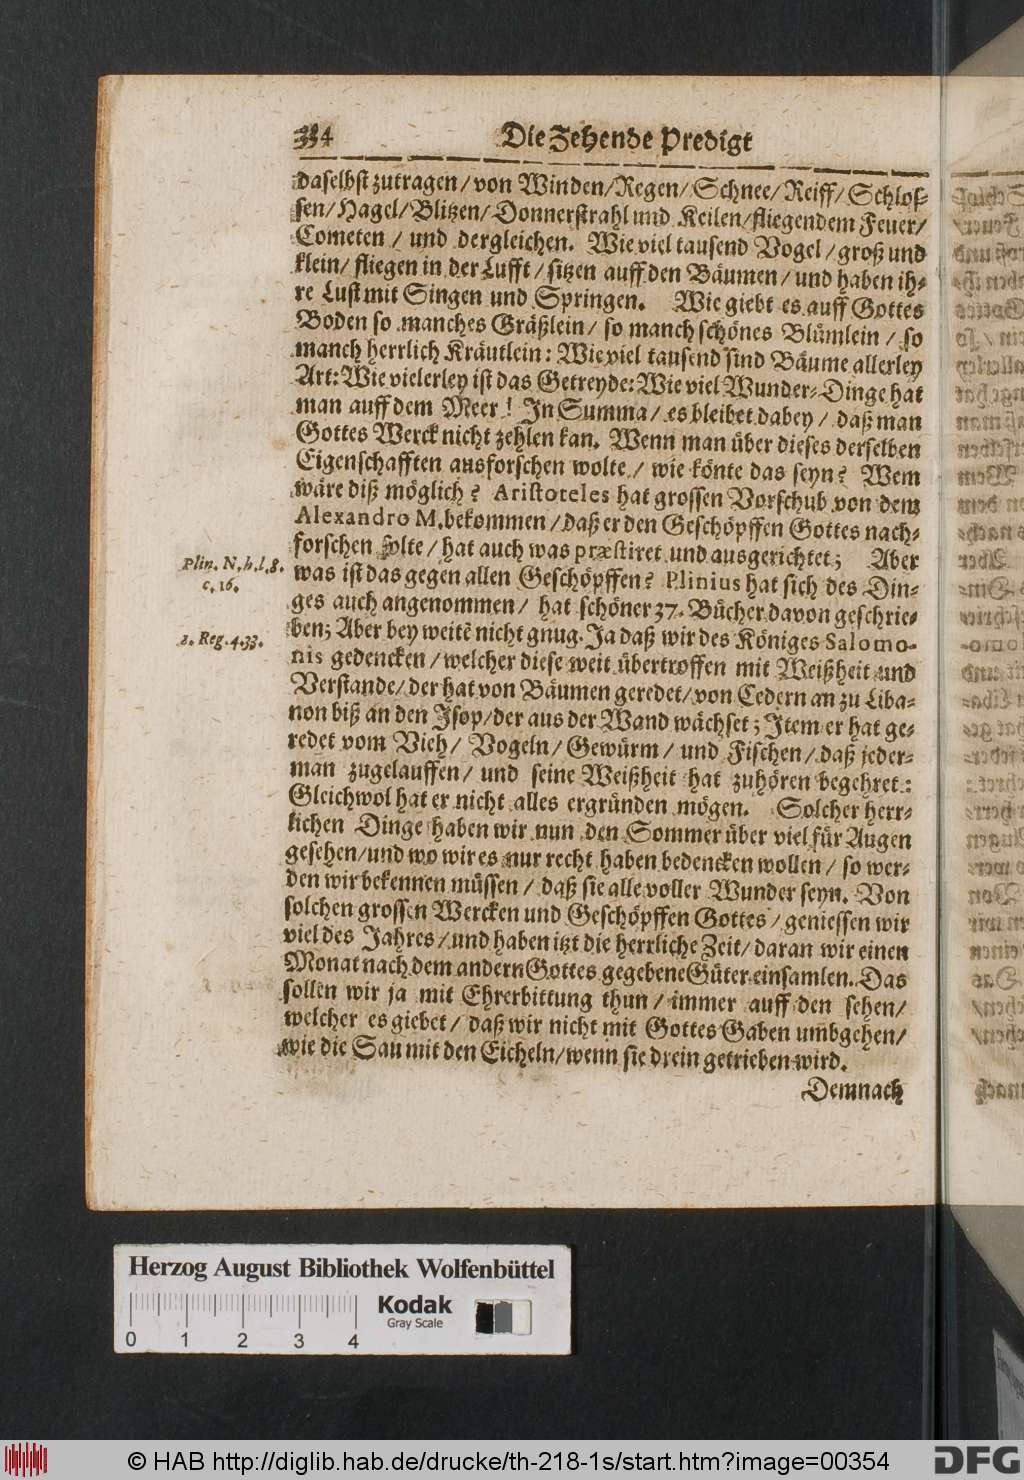 334 Die Zehende Predigt
daselbst zutragen / von Winden / Regen / Schnee / Reiff / Schlos-
sen / Hagel / Blitzen / Donnerstrahl und Keilen / fliegendem Feuer /
Cometen / und dergleichen. Wie viel tausend Vogel / groß und
klein / fliegen in der Lufft / sitzen auff den Bäumen / und haben ih-
re Lust mit Singen und Springen. Wie giebt es auff Gottes
Boden so manches Gräßlein / so manch schönes Blümlein / so
manch herrlich Kräutlein: Wie viel tausend sind Bäume allerley
Art: Wie vielerley ist das Getreyde: Wie viel Wunder-Dinge hat
man auff dem Meer! In Summa / es bleibet dabey / daß man
Gottes Werck nicht zehlen kan. Wenn man über dieses derselben
Eigenschafften ausforschen wolte / wie könte das seyn? Wem
wäre diß möglich? Aristoteles hat grossen Vorschub von dem
Alexandro M. bekommen / daß er den Geschöpffen Gottes nach-
forschen solte / hat auch was præstiret und ausgerichtet; Aber
Plin. N. h. l. 8.
c. 16.
was ist das gegen allen Geschöpffen? Plinius hat sich des Din-
ges auch angenommen / hat schöner 37. Bücher davon geschrie-
ben; Aber bey weitē nicht gnug. Ja daß wir des Königes Salomo-
1. Reg. 4.33.
nis gedencken / welcher diese weit übertroffen mit Weißheit und
Verstande / der hat von Bäumen geredet / von Cedern an zu Liba-
non biß an den Isop / der aus der Wand wächset; Item er hat ge-
redet vom Vieh / Vogeln / Gewürm / und Fischen / daß jeder-
man zugelauffen / und seine Weißheit hat zuhören begehret:
Gleichwol hat er nicht alles ergründen mögen. Solcher herr-
lichen Dinge haben wir nun den Sommer über viel für Augen
gesehen / und wo wir es nur recht haben bedencken wollen / so wer-
den wir bekennen müssen / daß sie alle voller Wunder seyn. Von
solchen grossen Wercken und Geschöpffen Gottes / geniessen wir
viel des Jahres / und haben itzt die herrliche Zeit / daran wir einen
Monat nach dem andern Gottes gegebene Güter einsamlen. Das
sollen wir ja mit Ehrerbittung thun / immer auff den sehen /
welcher es giebet / daß wir nicht mit Gottes Gaben um̃bgehen /
wie die Sau mit den Eicheln / wenn sie drein getrieben wird.
Demnach
Herzog August Bibliothek Wolfenbüttel
0 1 2 3 4
Kodak
Gray Scale
© HAB http://diglib.hab.de/drucke/th-218-1s/start.htm?image=00354
DFG